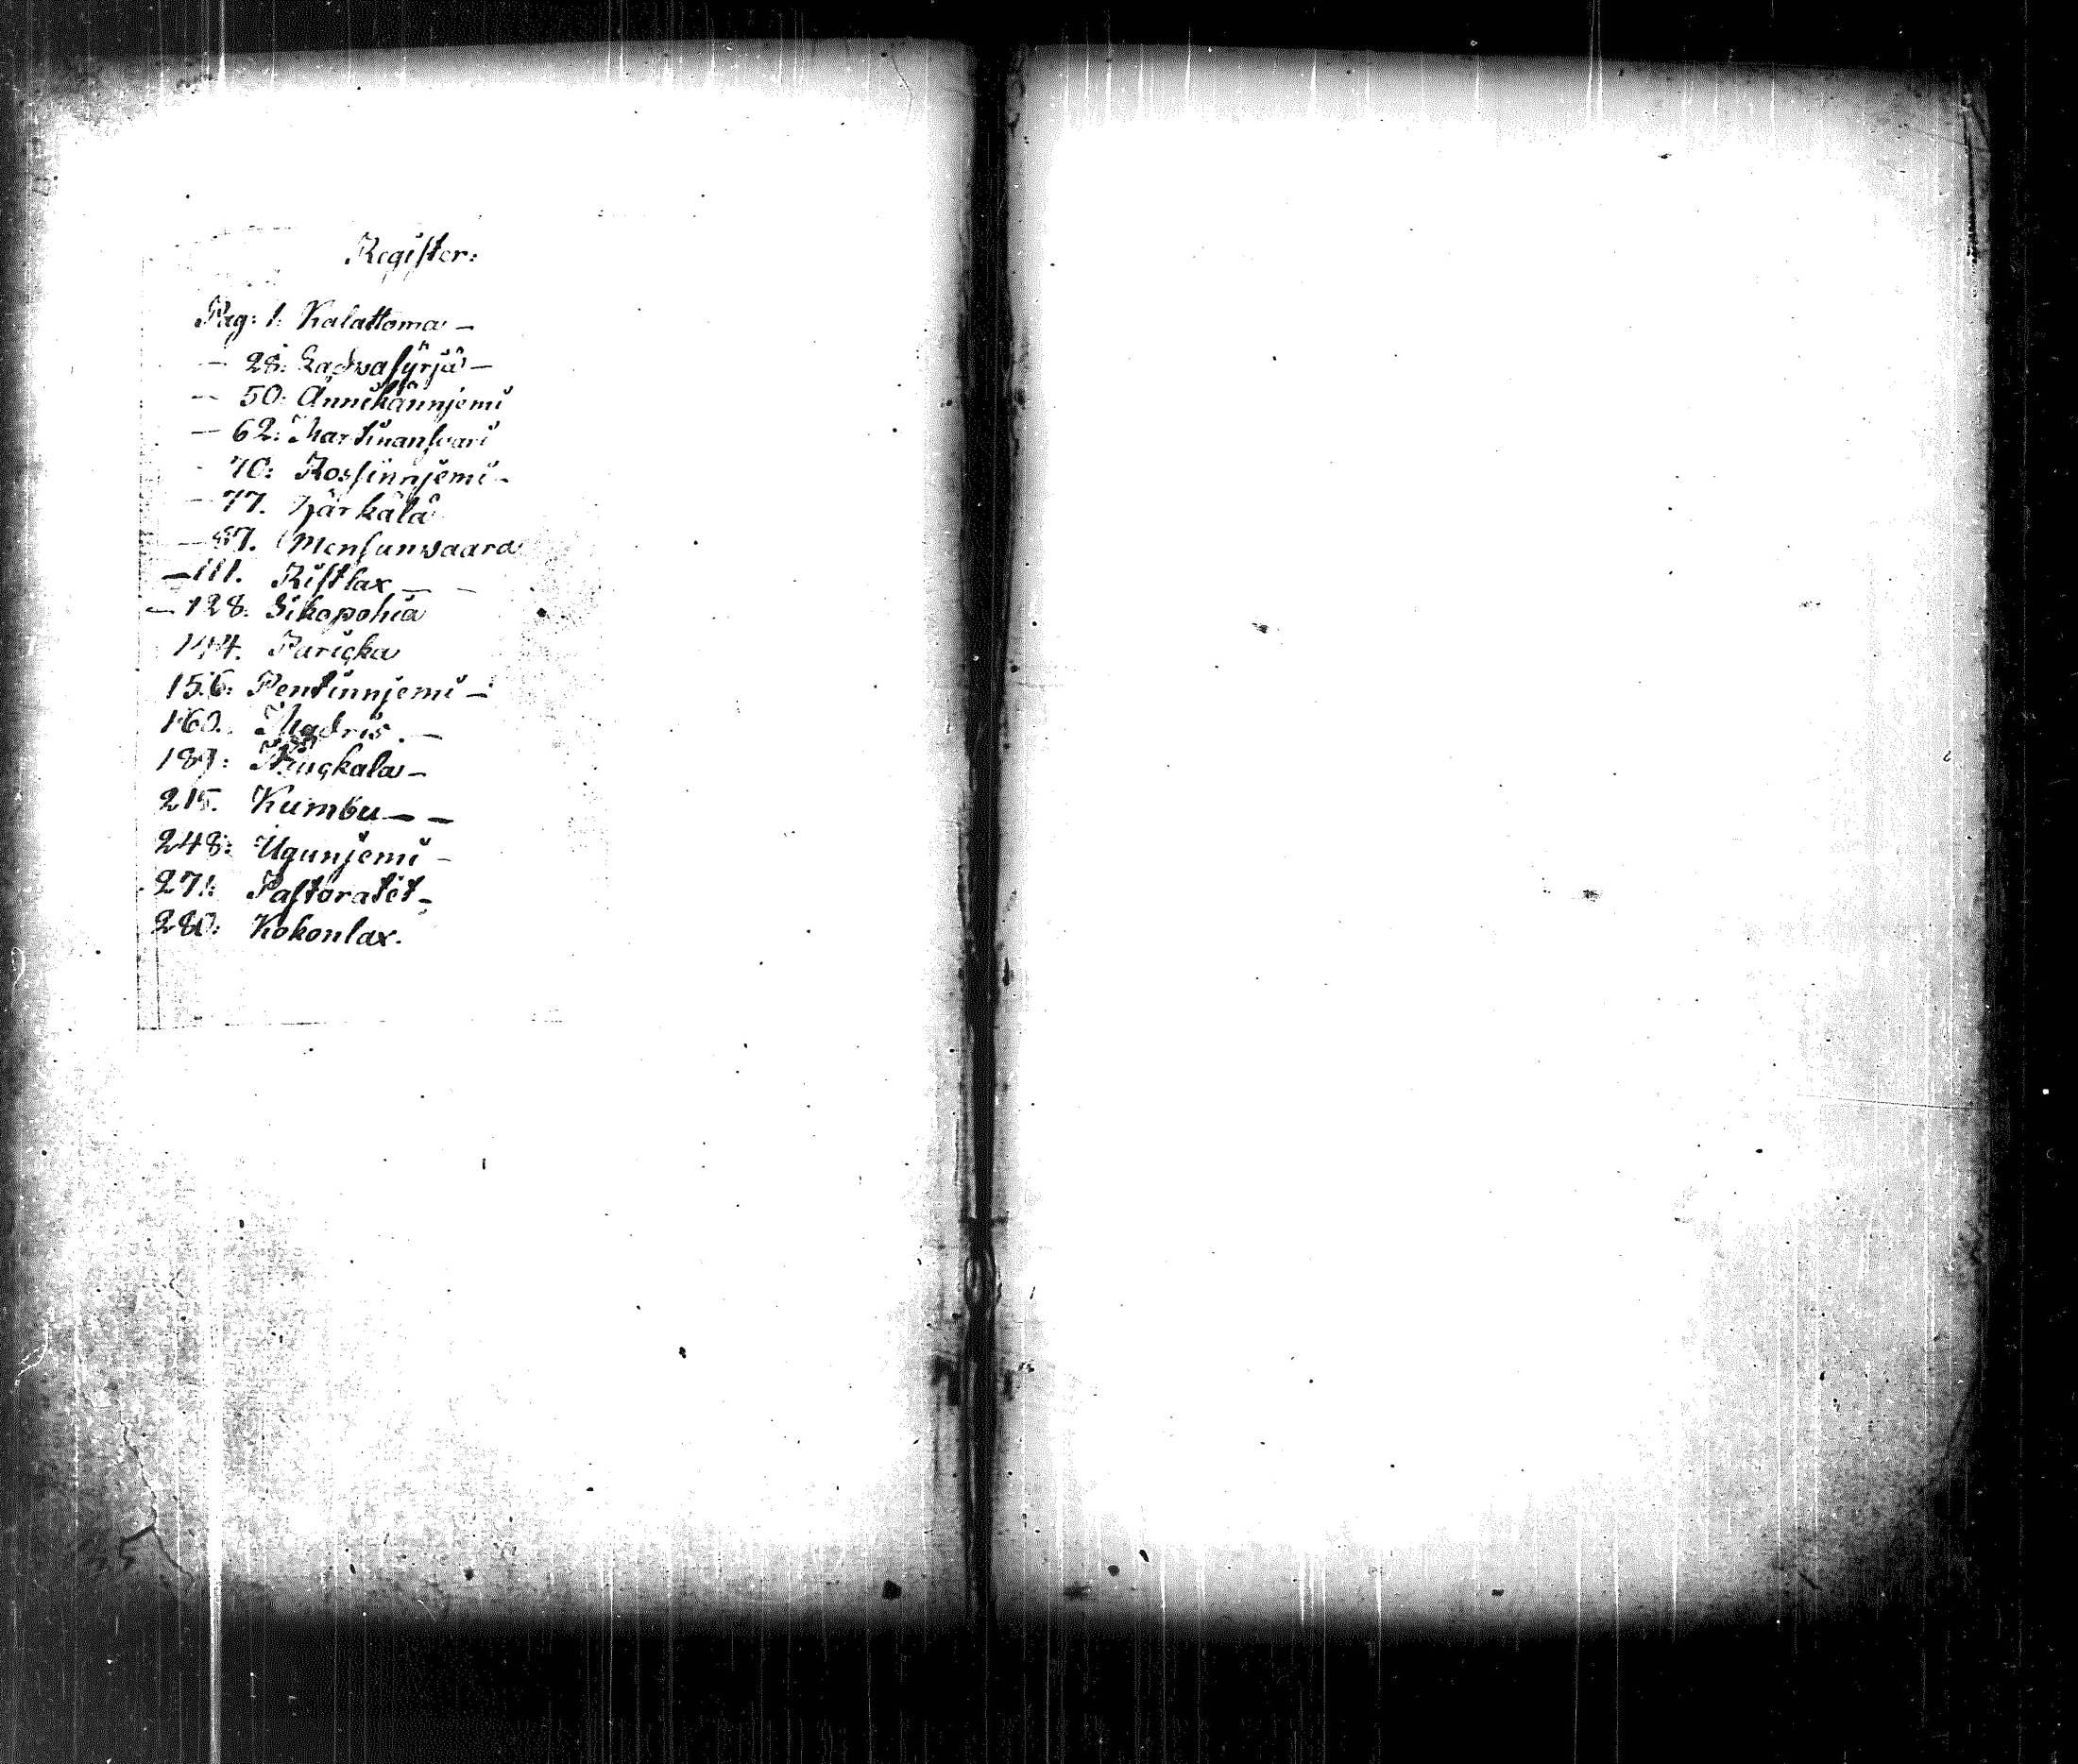 Register:
Pag: 1. Kalattoma —
— 28: Ladvasyrjä —
— 50: Annikännjemi
— 62: Martinansvari
- 70: Rossinnjemi -
— 77. Järkälä
— 87. Monsunvaara
— 111. Ristlax —
— 128. Sikopohia
144. Paricka
156: Pentinnjemi —
160. Madris. —
187: kala —
215. Kumbu — —
248: Ugunjemi —
271: Pastoratet —
280: Kokonlax.